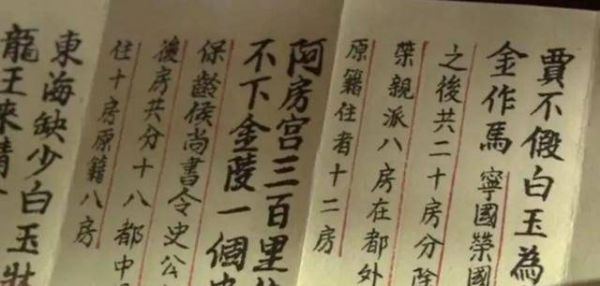 賈不假白玉為
金作馬 寧國榮國
之後共二十房分除
榮親派八房在都外
原籍住者十二房
阿房宫三百里
不下金陵一個
保齡侯尚書令史公
後房共分十八都中
住十房原籍八房
東海缺少白玉牀
龍王來請